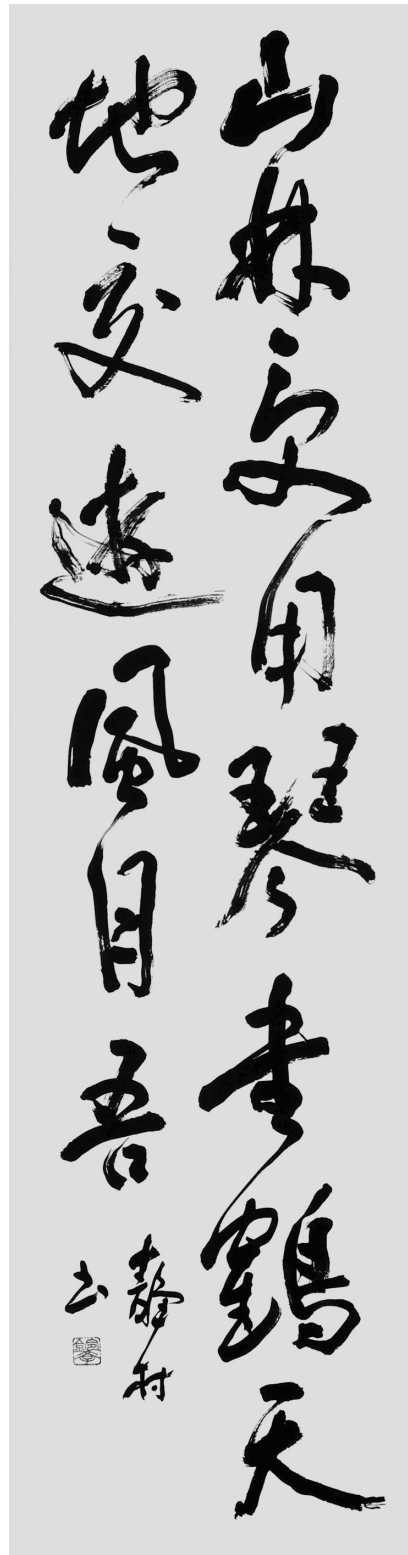 山林受用琴書鶴天
地交遊風月吾
靜村
書